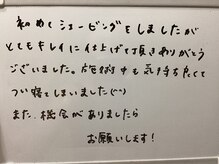 初めてシェービングをしましたが
とてもキレイに仕上げて頂きありがとう
ございました。施術中も気持ちたくて
つい寝てしまいました(^^)
また機会がありましたら
お願いします!